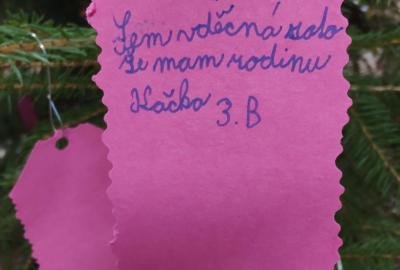 Jem vděčná zalo
že mam rodinu
Kačka 3.B